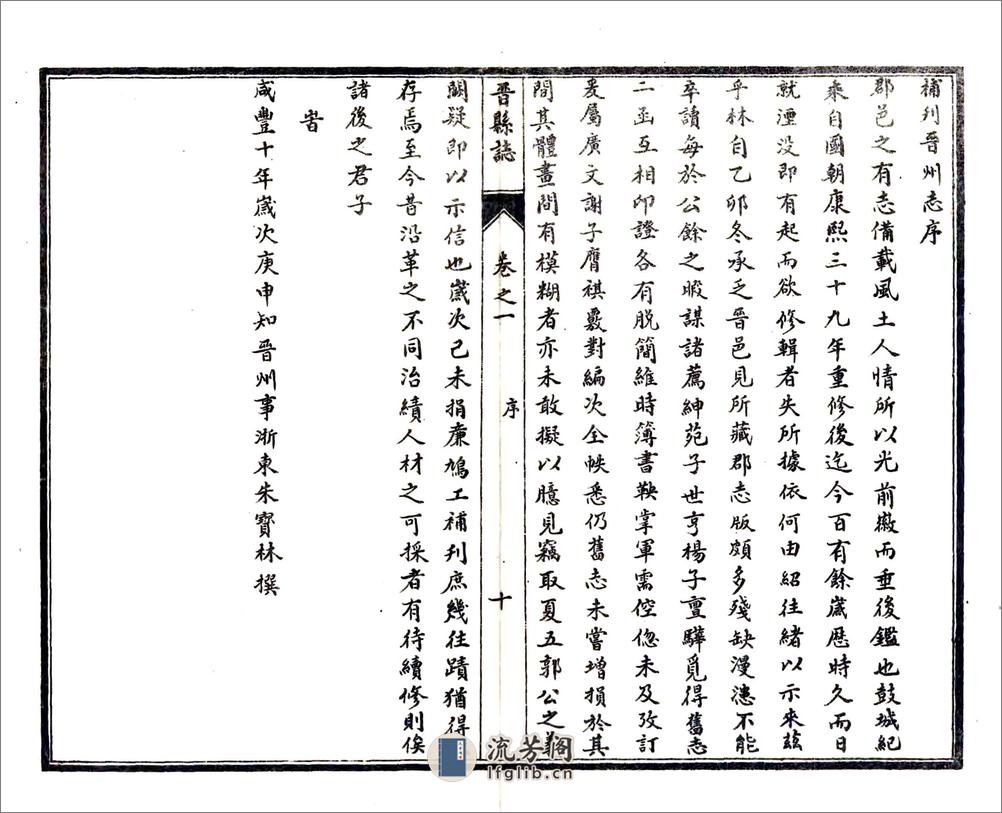 補刋晉州志序
郡邑之有志備載風土人情所以光前徽而垂後鑑也鼓城紀
乘自國朝康熙三十九年重修後迄今百有餘歲歷時久而日
就湮没即有起而欲修輯者失所據依何由紹往緒以示來茲
乎林自乙卯冬承乏晉邑見所藏郡志版頗多殘缺漫漶不能
卒讀每於公餘之暇謀諸薦紳苑子世亨楊子亶驊覓得舊志
二函互相印證各有脱簡維時簿書鞅掌軍需倥偬未及攷訂
爰屬廣文謝子膺祺覈對編次全帙悉仍舊志未嘗增損於其
間其體畫間有模糊者亦未敢擬以臆見竊取夏五郭公之義
闕疑即以示信也歲次己未捐亷鳩工補刋庶幾往蹟猶得
存焉至今昔沿革之不同治績人材之可採者有待續修則俟
諸後之君子
旹
咸豐十年歲次庚申知晉州事浙東朱寳林撰
晉縣誌
卷之一
序
十
流芳阁
lfglib.cn